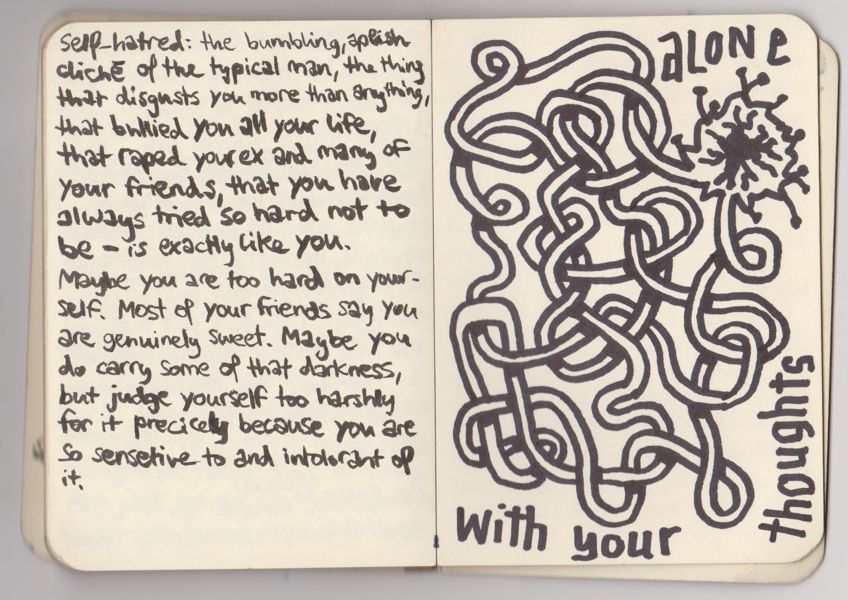 self-hatred: the bumbling, apeish
cliché of the typical man, the thing
that disgusts you more than anything,
that bullied you all your life,
that raped your ex and many of
your friends, that you have
always tried so hard not to
be - is exactly like you.
Maybe you are too hard on your-
self. Most of your friends say you
are genuinely sweet. Maybe you
do carry some of that darkness,
but judge yourself too harshly
for it precicely because you are
so sensetive to and intolorant of
it.
alone
with your
thoughts